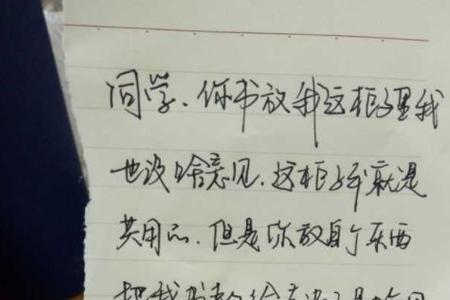 同学、你书放我这柜子里我
也没啥意见、这柜子本就是
共用品、但是你放自个东西
把我书都给